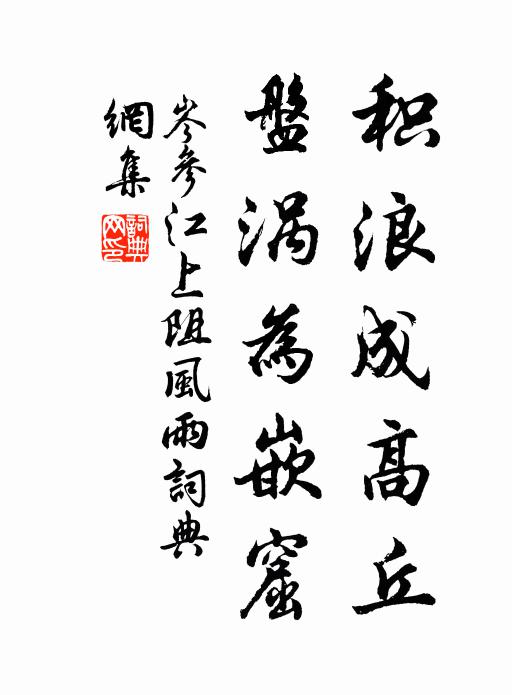 积浪成高丘
盤涡為嵌窟
岑參江上阻風雨詞典
網集
詞典网印